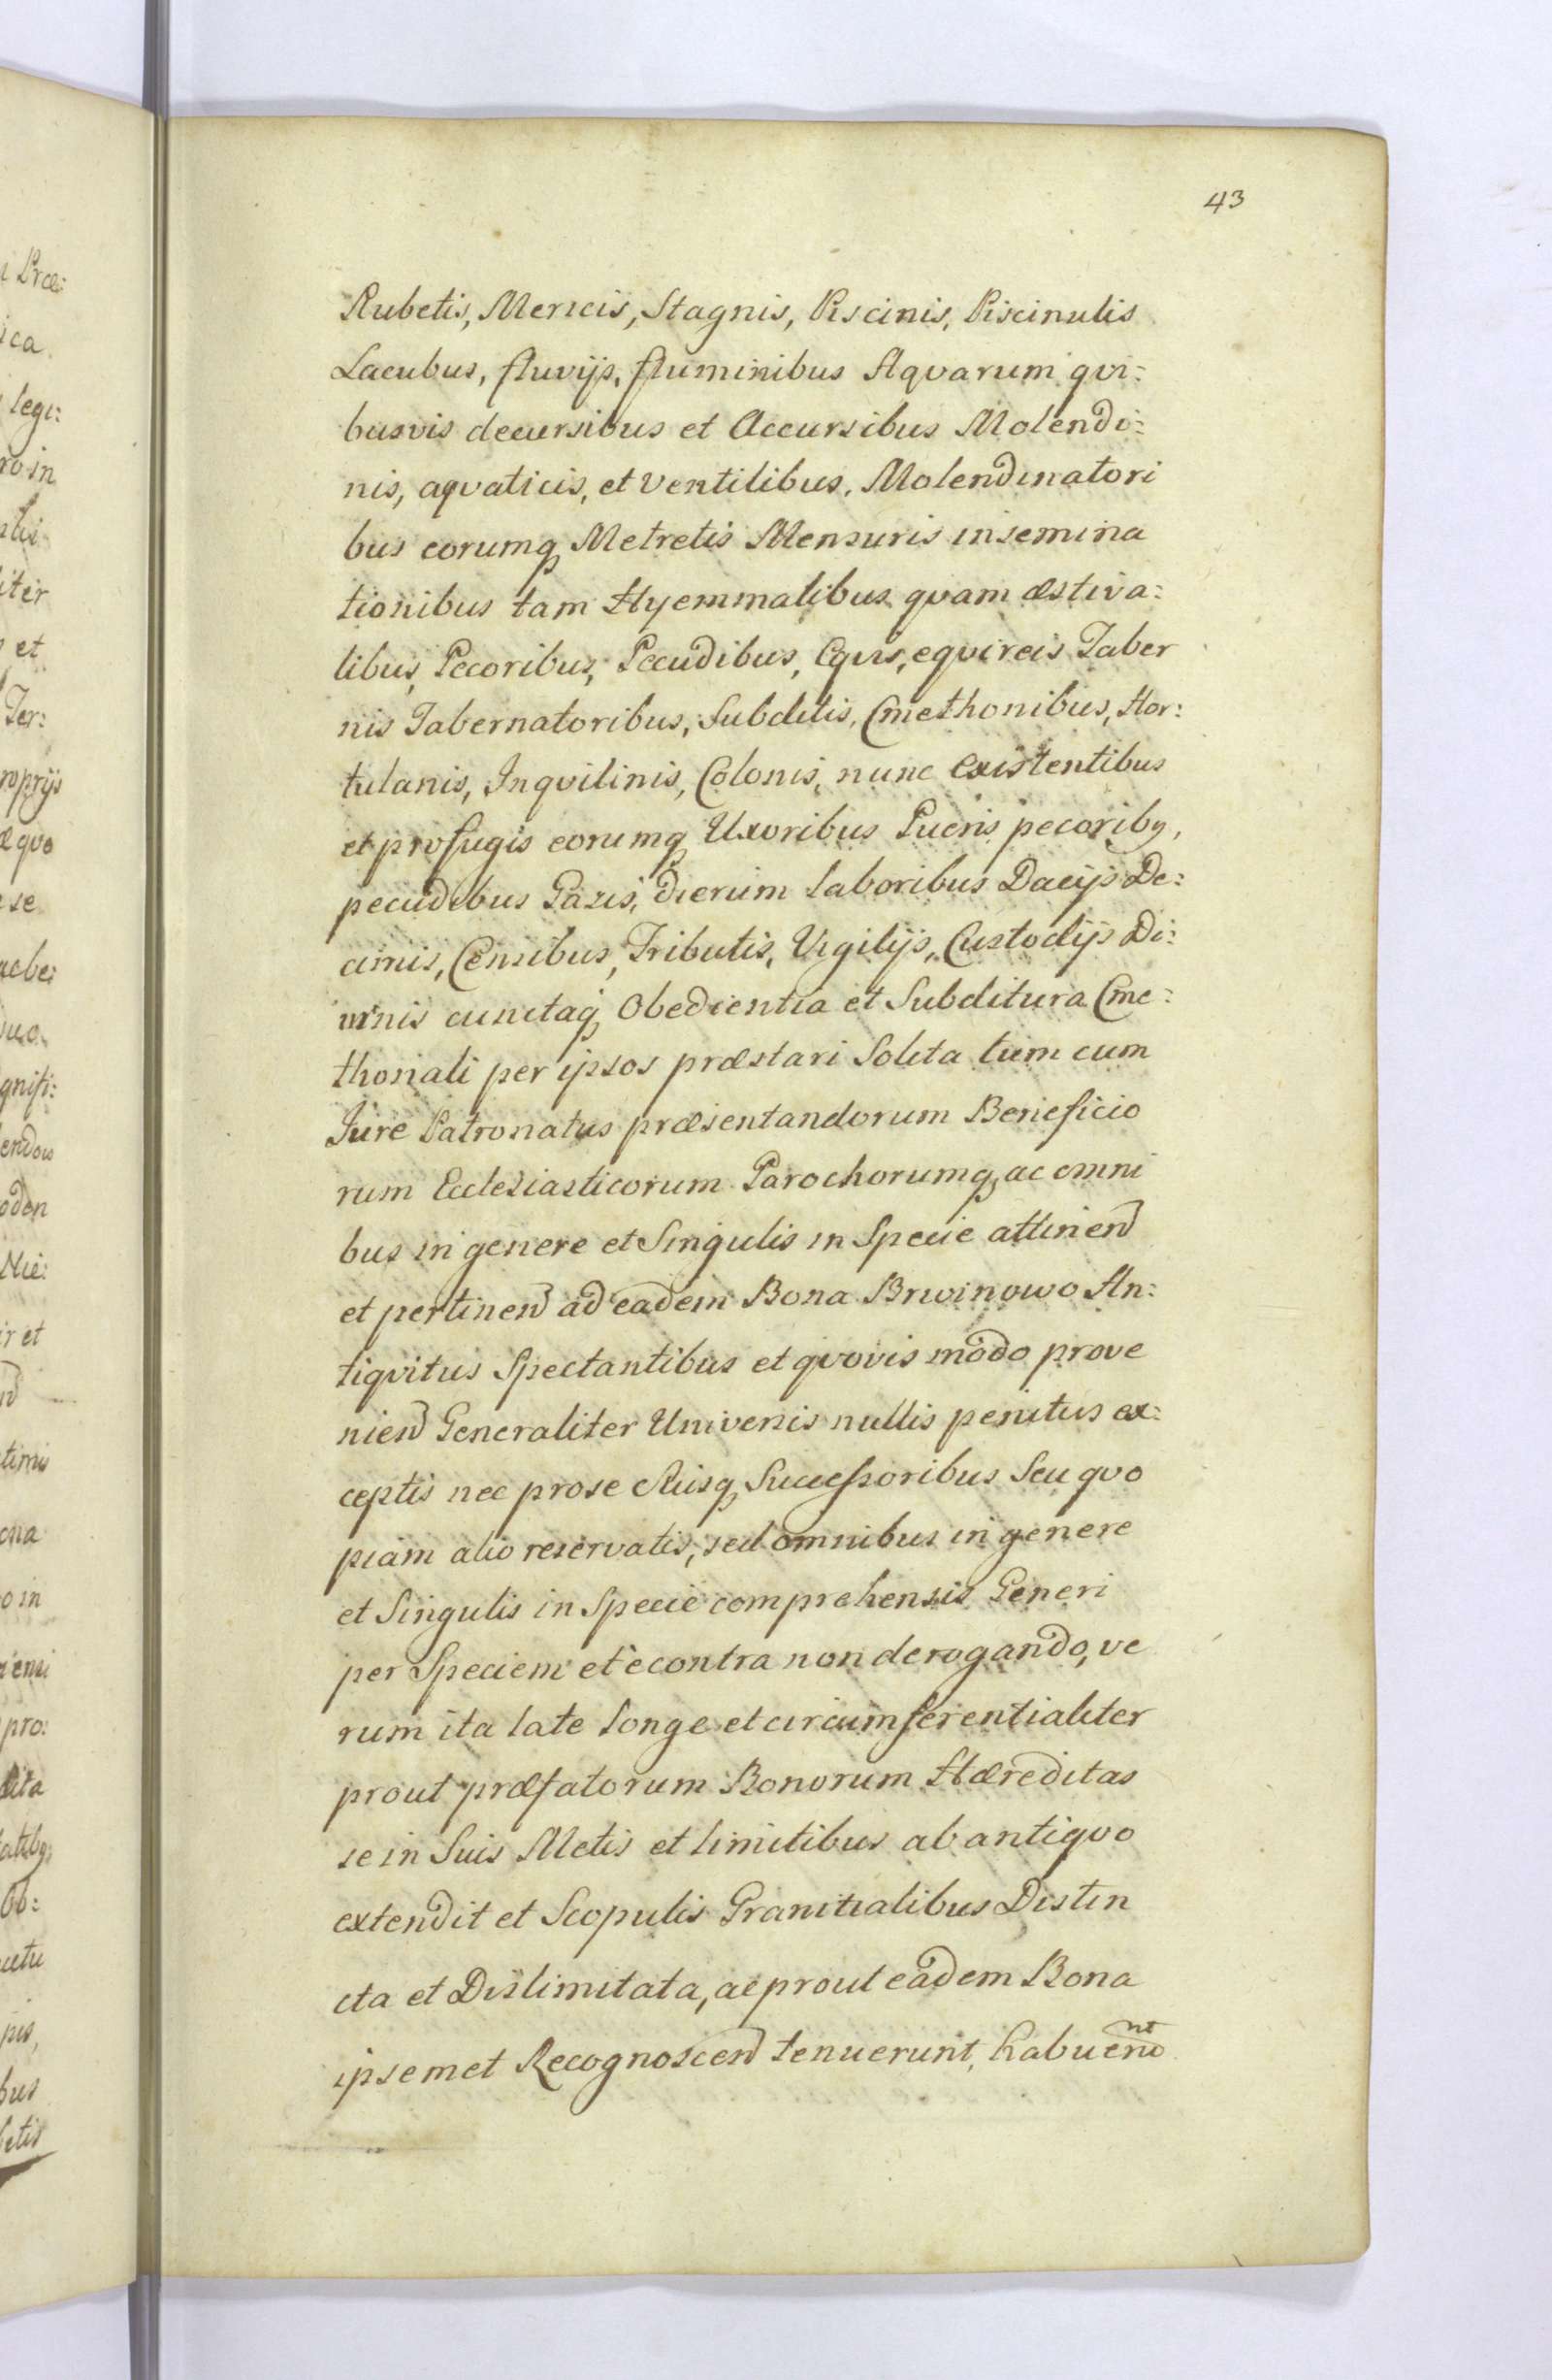 43
Rubetis, Mericis, Stagnis, Piscinis, Piscinulis
Lacubus, fluvijs, fluminibus Aqvarum qvi:
busvis decursibus et Accursibus Molendi:
nis, aqvaticis, et ventilibus, Molendinatori
bus eorumq Metretis Mensuris insemina
tionibus tam Hyemmalibus qvam æstiva:
libus, Pecoribus, Pecudibus, Eqvis, eqvireis Taber
nis Tabernatoribus, Subditis, Cmethonibus, Hor:
tulanis, Inqvilinis, Colonis, nunc Existentibus
et profugis eorumq Uxoribus Pueris pecoribq,
pecudibus Gazis, dierum laboribus Dacijs De:
cimis, Censibus, Tributis, Vigilijs, Custodijs Di:
urnis cunctaq Obedientia et Subditura Cme:
thonali per ipsos præstari Solita tum cum
Jure Patronatus præsentandorum Beneficio
rum Ecclesiasticorum Parochorumq ac omni
bus in genere et Singulis in Specie attinen
et pertinen ad eadem Bona Brwinowo An:
tiqvitus Spectantibus et qvovis modo prove
nien Generaliter Universis nullis penitus ex:
ceptis nec prose suisq Successoribus Seu qvo
piam alio reservatis, sed omnibus in genere
et Singulis in Specie comprehensis Generi
per Speciem et econtra non derogando, ve
rum ita late longe et circumferentialiter
prout præfatorum Bonorum Hæreditas
se in Suis Metis et limitibus ab antiqvo
extendit et Scopulis Granitialibus Distin
cta et Dislimitata, ac prout eadem Bona
ipsemet Recognoscen tenuerunt,